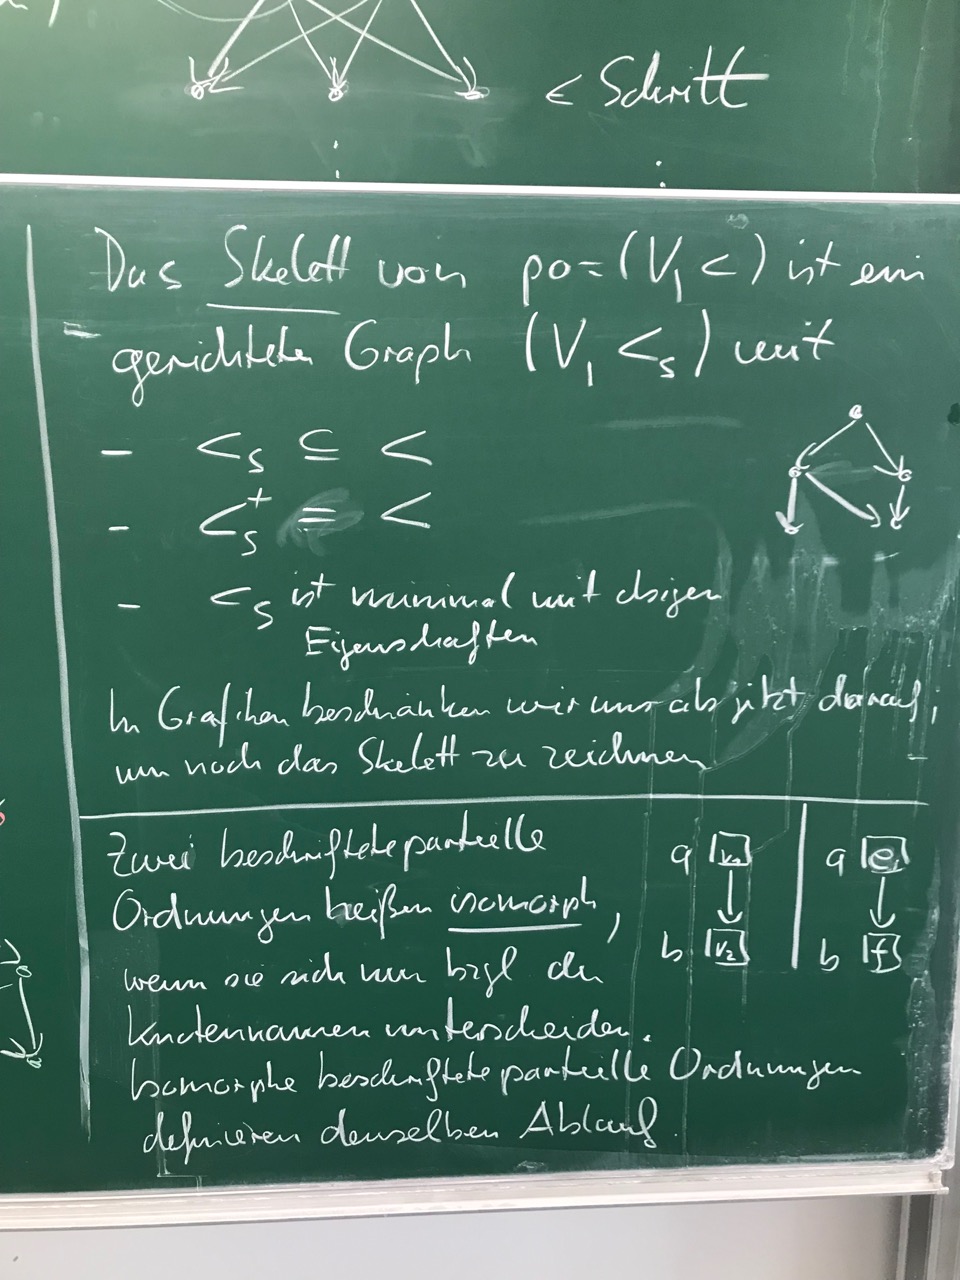 ← Schritt
Das Skelett von po=(V, <) ist ein
gerichteter Graph (V, <s) mit
- <s ⊆ <
- <s⁺ = <
- <s ist minimal mit obigen
Eigenschaften
In Grafiken beschränken wir uns ab jetzt darauf,
nur noch das Skelett zu zeichnen
Zwei beschriftete partielle
Ordnungen heißen isomorph,
wenn sie sich nur bzgl der
Knotennamen unterscheiden.
Isomorphe beschriftete partielle Ordnungen
definieren denselben Ablauf.
a v₁
b v₂
a e
b f